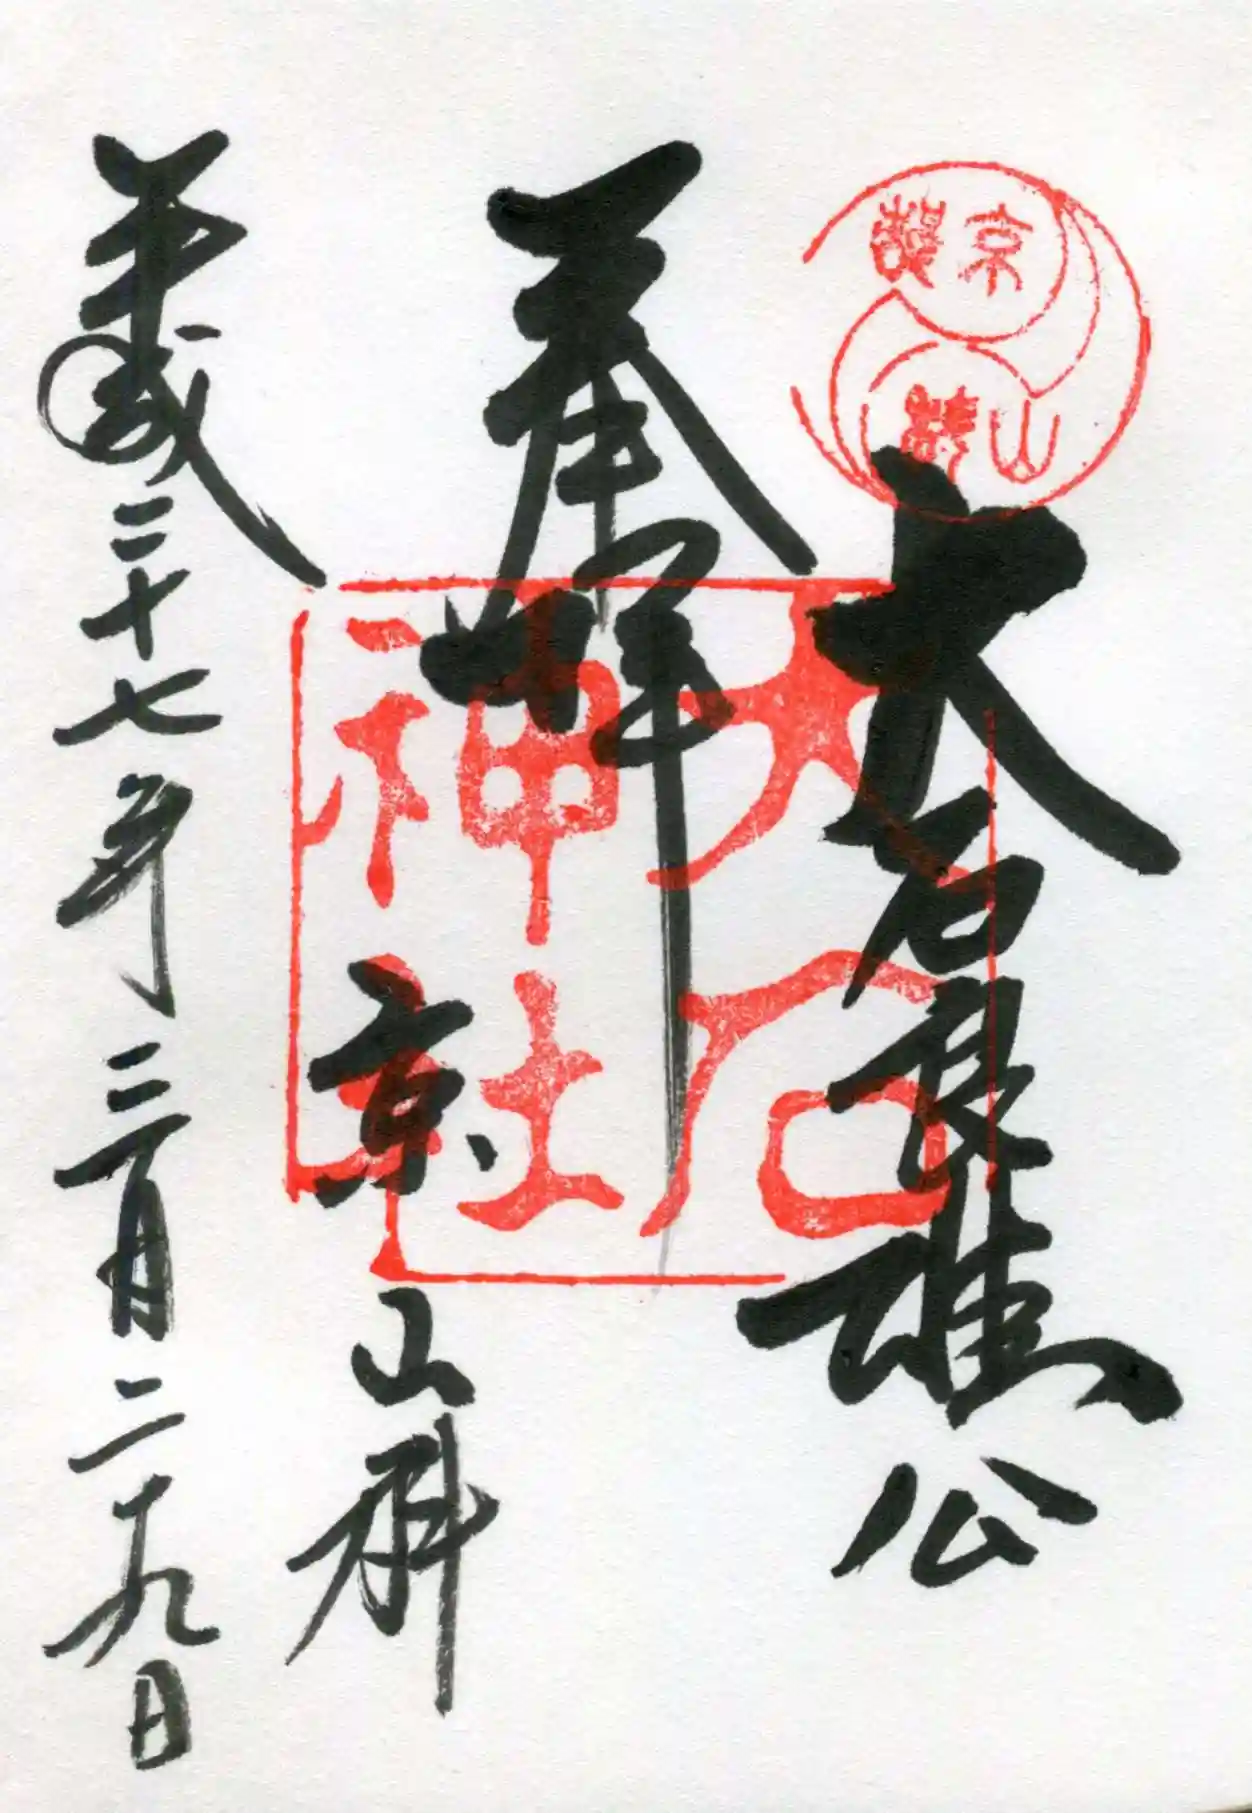 大石良雄公
奉拝
京、山科
平成二十七年三月二十九日
大石
神社
京都
山科